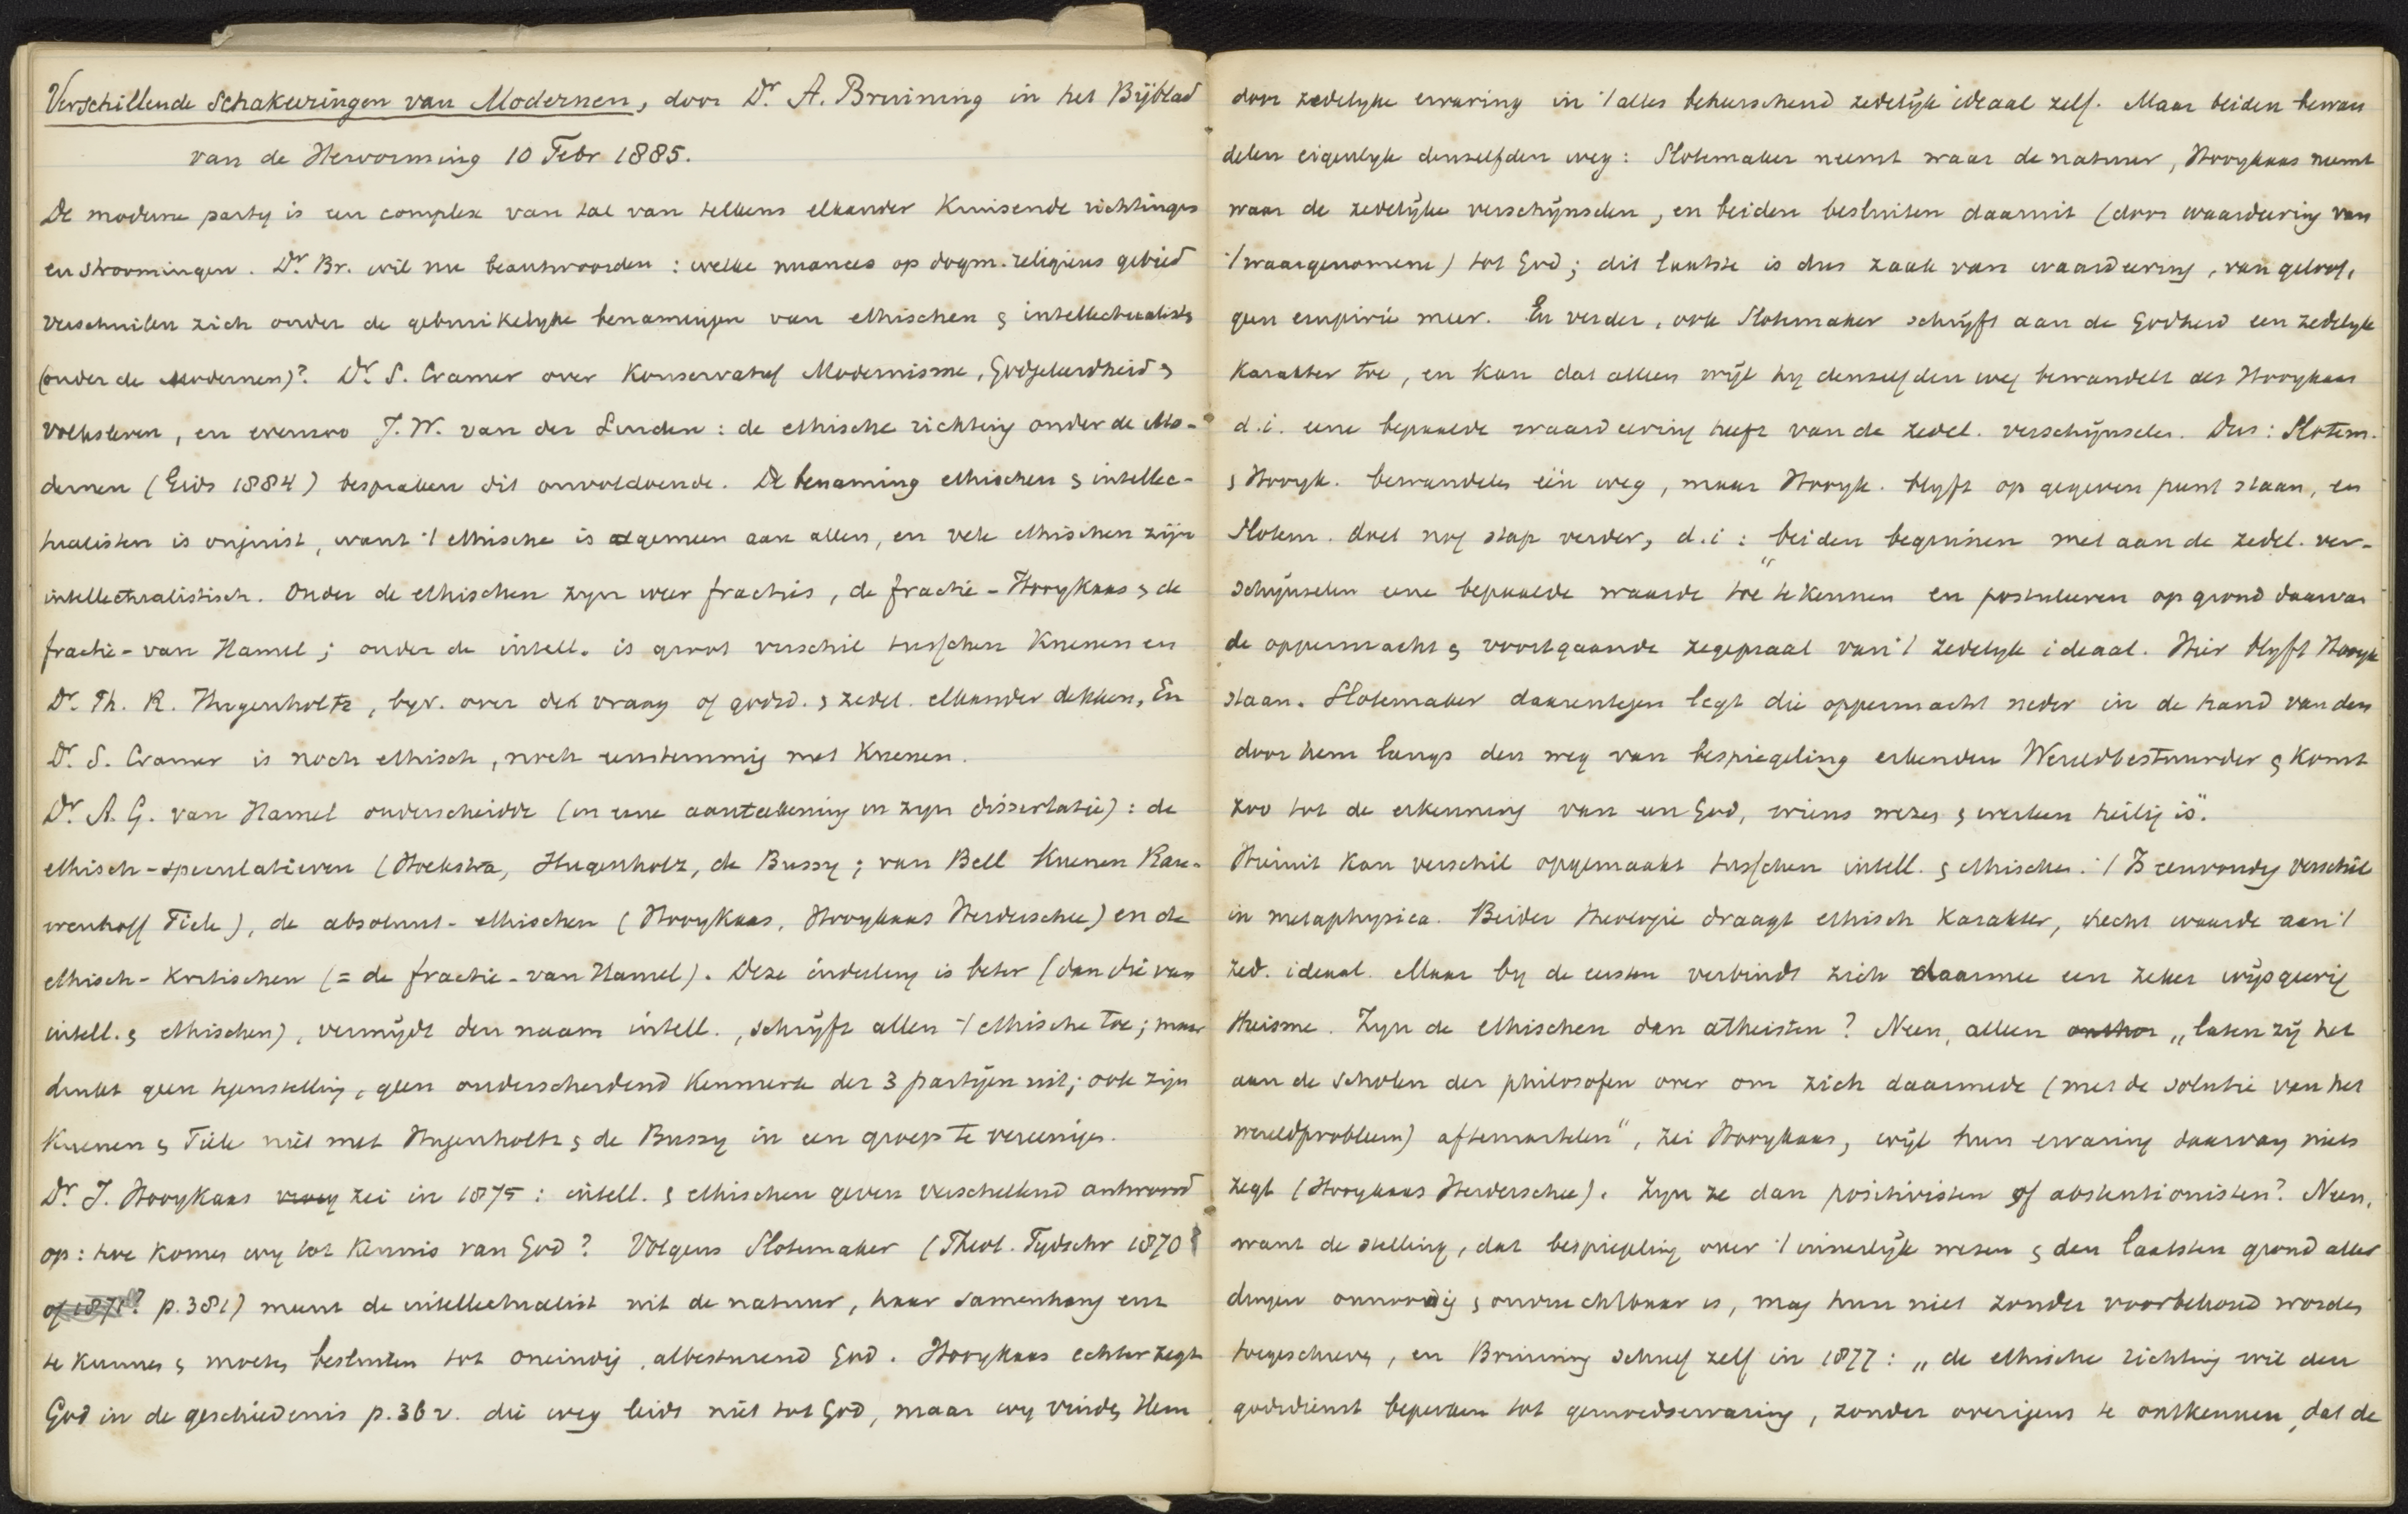 Verschillende Schakeeringen van Modernen, door Dr. A. Bruining in het Bijblad
van de Hervorming 10 Febr 1885.
De moderne party is een complex van tal van telkens elkander kruisende richtingen
en stroomingen. Dr. Br. wil nu beantwoorden: welke nuances op dogm. religieus gebied
verschuilen zich onder de gebruikelyke benamingen van ethischen & intellectualisten
(onder de modernen)? Dr. S. Cramer over Konservatief Modernisme, Godgeleerdheid &
volksleven, en evenzoo J. W. van der Linden: de ethische richting onder de Mo-
dernen (Gids 1884) bespraken dit onvoldoende. De benaming ethischen & intellec-
tualisten is onjuist, want 't ethische is algemeen aan allen, en vele ethischen zijn
intellectualistisch. Onder de ethischen zyn weer fracties, de fractie-Hooykaas & de
fractie-van Hamel; onder de intell. is groot verschil tusschen Kuenen en
Dr. Ph. R. Hugenholtz, byv. over de vraag of godsd. & zedel. elkander dekken, En
Dr. S. Cramer is noch ethisch, noch eenstemmig met Kuenen.
Dr. A. G. van Hamel onderscheidde (in eene aanteekening in zyn dissertatie): de
ethisch-speculatieven (Hoekstra, Hugenholz, de Bussy; van Bell Kuenen Rau-
wenhoff Tiele), de absoluut-ethischen (Hooykaas, Hooykaas Herderschee) en de
ethisch-kritischen (= de fractie-van Hamel). Deze indeeling is beter (dan die van
intell. & ethischen), vermijdt den naam intell., schrijft allen 't ethische toe; maar
drukt geen tegenstelling, geen onderscheidend kenmerk der 3 partijen uit; ook zijn
Kuenen & Tiele niet met Hugenholtz & de Bussy in een groep te vereenigen.
Dr. J. Hooykaas zei in 1875: intell. & ethischen geven verschillend antwoord
op: hoe komen wy tot kennis van God? Volgens Slotemaker (Theol. Tydschr 1870
of 1871? p. 381) meent de intellectualist uit de natuur, haar samenhang enz
te kunnen & moeten besluiten tot oneindig, albesturend God. Hooykaas echter zegt
God in de geschiedenis p. 36 v. die weg leidt niet tot God, maar wy vinden Hem
door zedelyke ervaring in 't alles beheerschend zedelijk ideaal zelf. Maar beiden bewan
delen eigenlyk denzelfden weg: Slotemaker neemt waar de natuur, Hooykaas neemt
waar de zedelijke verschijnselen, en beiden besluiten daaruit (door waardeering van
't waargenomene) tot God; dit laatste is dus zaak van waardeering, van geloof,
geen empirie meer. En verder, ook Slotemaker schrijft aan de Godheid een zedelyk
karakter toe, en kan dat alleen wijl hy denzelfden weg bewandelt als Hooykaas
d. i. eene bepaalde waardeering heeft van de zedel. verschijnselen. Dus: Slotem.
& Hooyk. bewandelen één weg, maar Hooyk. blyft op gegeven punt staan, en
Slotem. doet nog stap verder, d. i: "beiden beginnen met aan de zedel. ver-
schijnselen eene bepaalde waarde toe te kennen en postuleeren op grond daarvan
de oppermacht & voortgaande zegepraal van 't zedelyk ideaal. Hier blyft Hooyk
staan. Slotemaker daarentegen legt die oppermacht neder in de hand van den
door hem langs den weg van bespiegeling erkenden Wereldbestuurder & komt
zoo tot de erkenning van een God, wiens wezen & werken heilig is".
Hieruit kan verschil opgemaakt tusschen intell. & ethischen. 't Is eenvoudig verschil
in metaphysica. Beider theologie draagt ethisch karakter, hecht waarde aan 't
zed. ideaal. Maar by de eersten verbindt zich daarmee een zeker wijsgeerig
theisme. Zyn de ethischen dan atheisten? Neen, alleen "laten zij het
aan de scholen der philosofen over om zich daarmede (met de solutie van het
wereldprobleem) aftemartelen", zei Hooykaas, wijl hun ervaring daarvan niets
zegt (Hooykaas Herderschee). Zyn ze dan positivisten of abstentionisten? Neen,
want de stelling, dat bespiegeling over 't innerlijk wezen & den laatsten grond aller
dingen onnoodig & onvruchtbaar is, mag hun niet zonder voorbehoud worden
toegeschreven, en Bruining schreef zelf in 1877: "de ethische richting wil den
godsdienst beperken tot gemoedservaring, zonder overigens te ontkennen, dat de